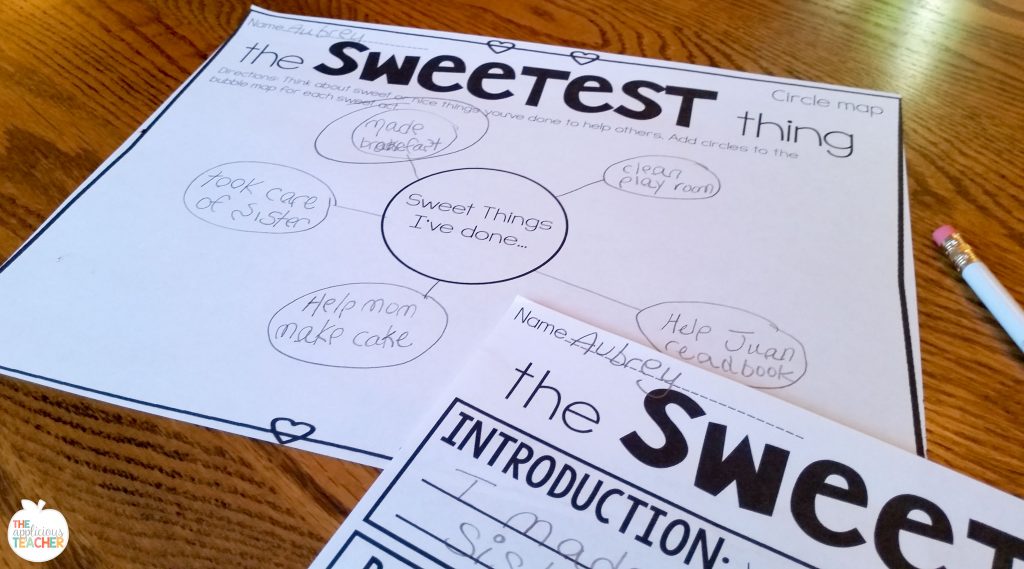 Name Aubrey
the SWEETEST thing
Circle map
Directions: Think about sweet or nice things you've done to help others. Add circles to the
bubble map for each sweet act
made
breakfast
clean
play room
took care
of sister
Sweet Things
I've done...
Help mom
make cake
Help Juan
readbook
Name Aubrey
the SWEET
INTRODUCTION:
I mad
sis
THE
applicious
TEACHER